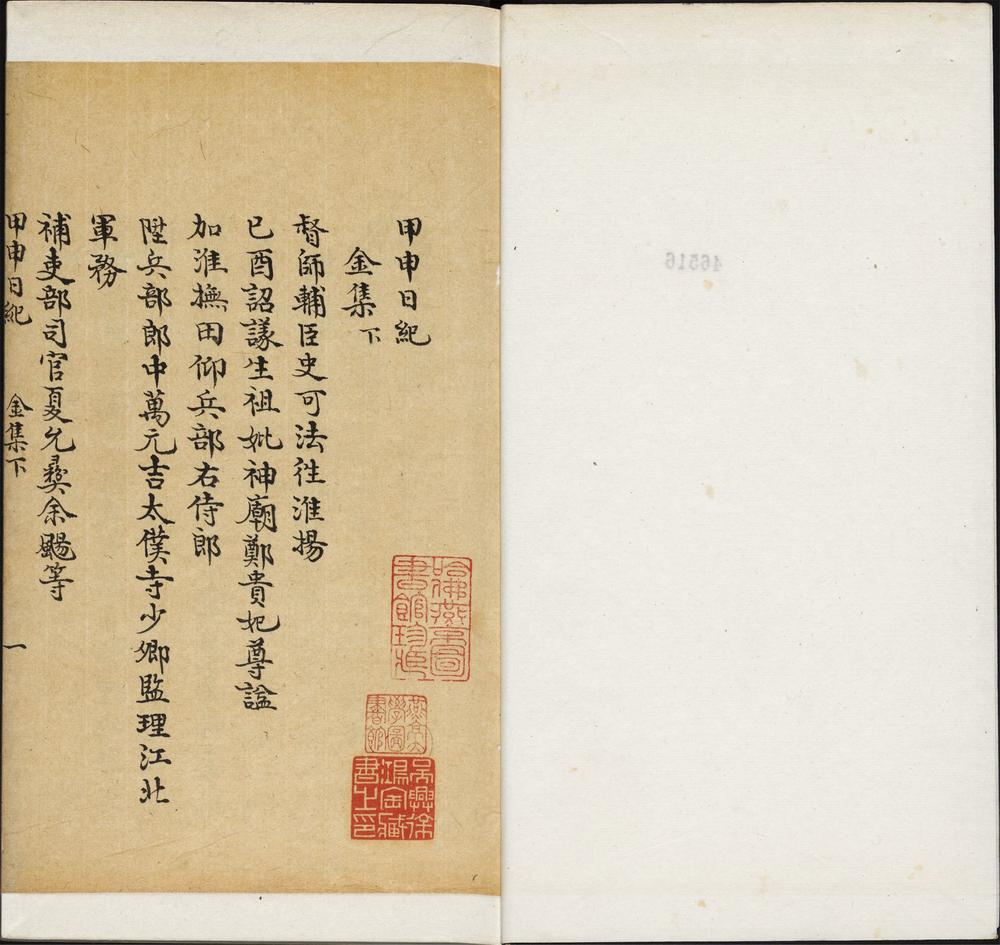 甲申日紀
金集下
督師輔臣史可法往淮揚
已酉詔議生祖妣神廟鄭貴妃尊諡
加淮撫田仰兵部右侍郎
陞兵部郎中萬元吉太僕寺少卿監理江北
軍務
補吏部司官夏允彝余颺等
甲申日紀 金集下 一
哈佛燕京圖書館珍藏
燕京大學圖書館
吳興徐鴻寶藏書之印
46516